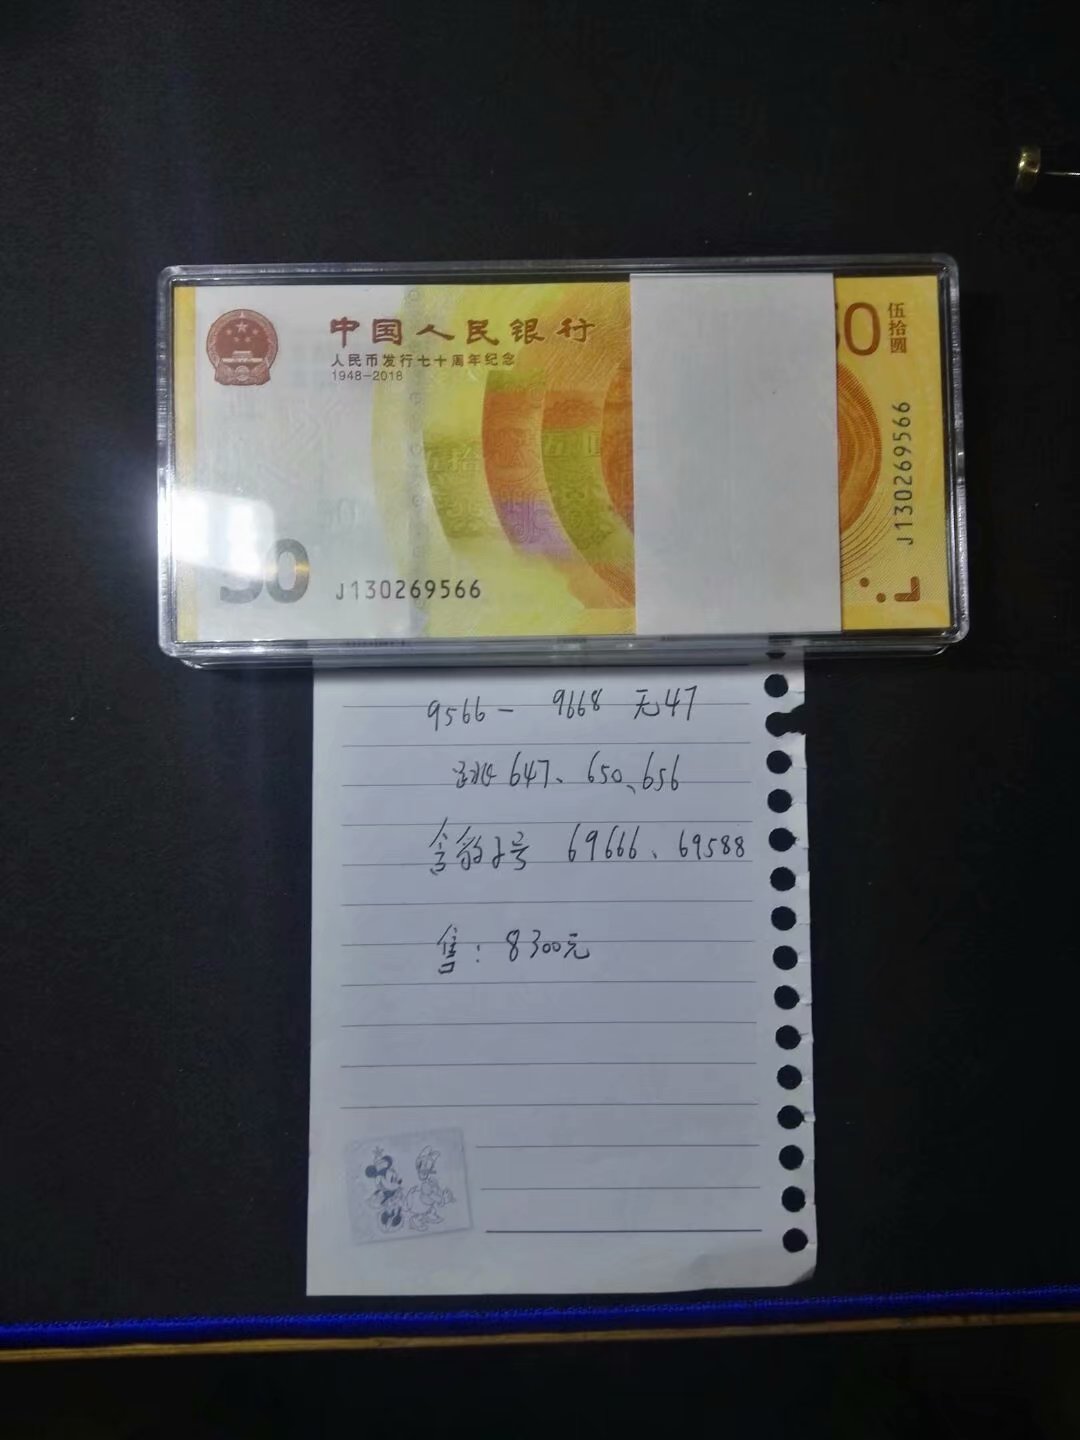 中国人民银行
人民币发行七十周年纪念
1948-2018
50
伍拾圆
J130269566
50
J130269566
9566一 9668 无47
647、650、656
含豹子号 69666、69588
售：8300元